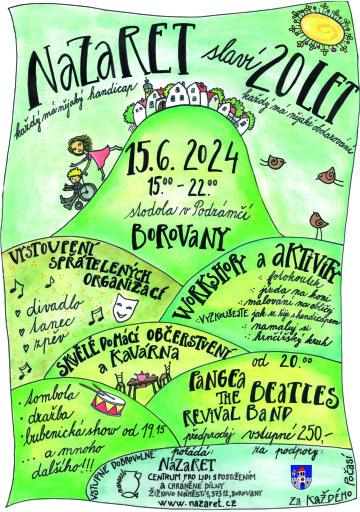 NAZARET slaví 20 LET
každý má nějaký handicap
každý má nějaké obdarování
15.6. 2024
15.00 - 22.00
stodola v Podzámčí
BOROVANY
VYSTOUPENÍ
SPŘÁTELENÝCH
ORGANIZACÍ
divadlo
tanec
zpěv
WORKSHOPY a AKTIVITY
fotokoutek
jízda na koni
malování na obličej
VYZKOUŠEJTE jak se žije s handicapem
namaluj si
hrnčířský kruh
SKVĚLÉ DOMÁCÍ OBČERSTVENÍ
a KAVÁRNA
tombola
dražba
bubenická show od 19.15
... a mnoho
dalšího!!!
od 20.00
PANGEA
THE BEATLES
REVIVAL BAND
předprodej vstupné 250,-
VSTUPNÉ DOBROVOLNÉ
pořádá:
NAZARET
CENTRUM PRO LIDI S POSTIŽENÍM
A CHRÁNĚNÉ DÍLNY
ŽIŽKOVO NÁMĚSTÍ 1, 373 12, BOROVANY
www.nazaret.cz
na podpory:
ZA KAŽDÉHO POČASÍ